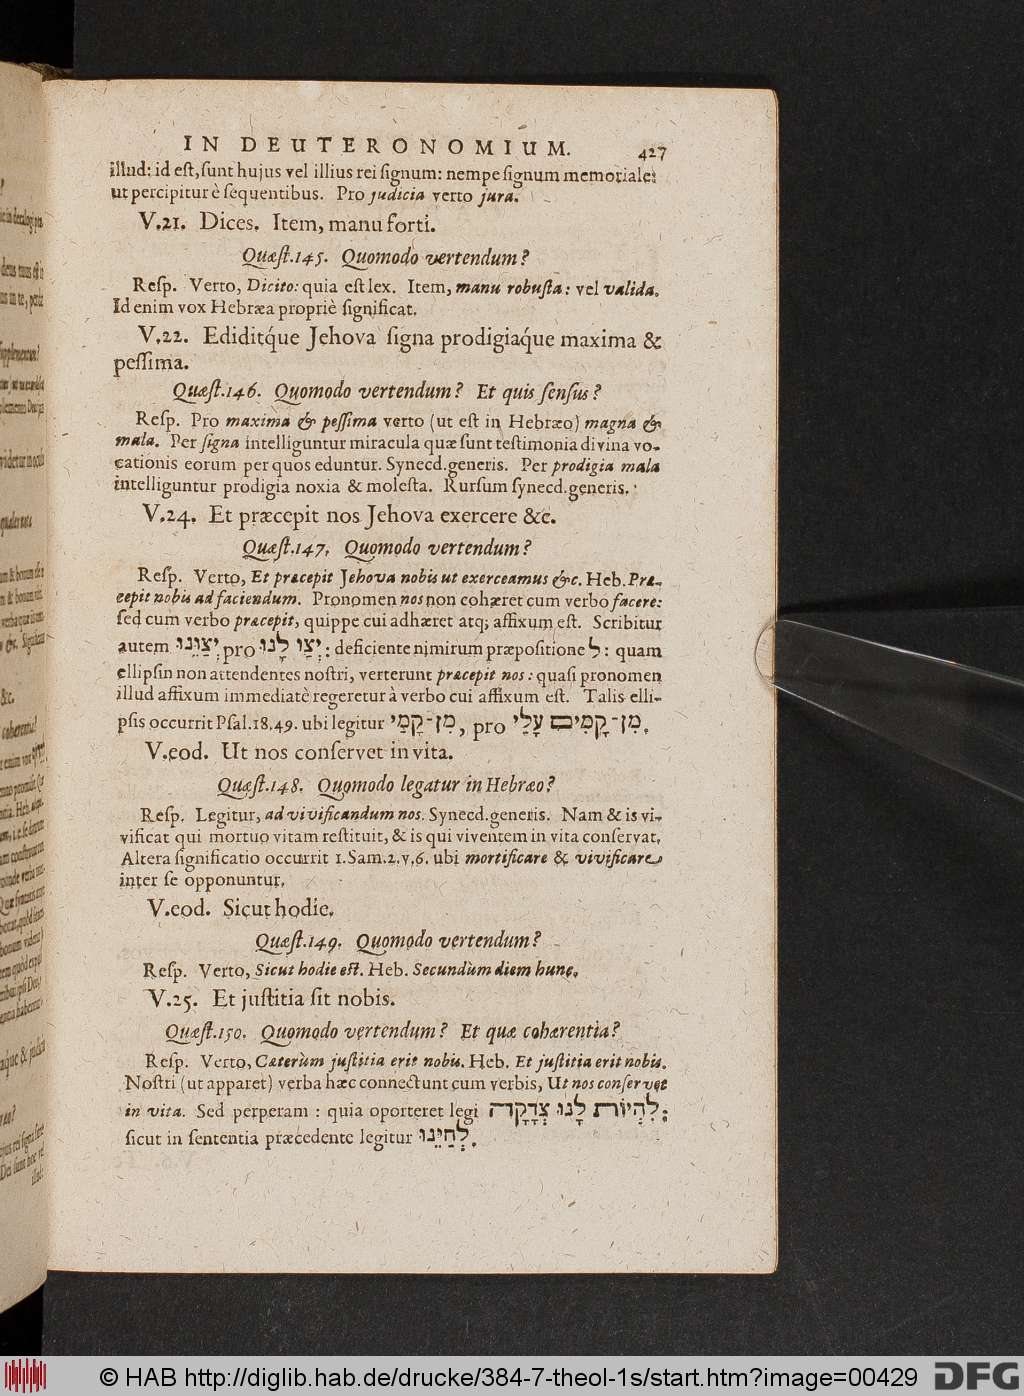 IN DEUTERONOMIUM. 427
illud: id est, sunt hujus vel illius rei signum: nempe signum memoriale:
ut percipitur è sequentibus. Pro judicia verto jura.
V.21. Dices. Item, manu forti.
Quæst.145. Quomodo vertendum?
Resp. Verto, Dicito: quia est lex. Item, manu robusta: vel valida.
Id enim vox Hebræa propriè significat.
V.22. Ediditq́ue Jehova signa prodigiaq́ue maxima &
pessima.
Quæst.146. Quomodo vertendum? Et quis sensus?
Resp. Pro maxima & pessima verto (ut est in Hebræo) magna &
mala. Per signa intelliguntur miracula quæ sunt testimonia divina vo-
cationis eorum per quos eduntur. Synecd.generis. Per prodigia mala
intelliguntur prodigia noxia & molesta. Rursum synecd.generis.
V.24. Et præcepit nos Jehova exercere &c.
Quæst.147. Quomodo vertendum?
Resp. Verto, Et præcepit Jehova nobis ut exerceamus &c. Heb. Præ-
cepit nobis ad faciendum. Pronomen nos non cohæret cum verbo facere:
sed cum verbo præcepit, quippe cui adhæret atq; affixum est. Scribitur
autem יְצַוֵּנוּ pro יְצַו לָנוּ: deficiente nimirum præpositione ל: quam
ellipsin non attendentes nostri, verterunt præcepit nos: quasi pronomen
illud affixum immediatè regeretur à verbo cui affixum est. Talis elli-
psis occurrit Psal.18.49. ubi legitur מִן-קָמַי, pro מִן-קָמִים עָלַי.
V.eod. Ut nos conservet in vita.
Quæst.148. Quomodo legatur in Hebræo?
Resp. Legitur, ad vivificandum nos. Synecd.generis. Nam & is vi-
vificat qui mortuo vitam restituit, & is qui viventem in vita conservat.
Altera significatio occurrit 1.Sam.2.v.6. ubi mortificare & vivificare
inter se opponuntur.
V.eod. Sicut hodie.
Quæst.149. Quomodo vertendum?
Resp. Verto, Sicut hodie est. Heb. Secundùm diem hunc.
V.25. Et justitia sit nobis.
Quæst.150. Quomodo vertendum? Et quæ cohærentia?
Resp. Verto, Cæterùm justitia erit nobis. Heb. Et justitia erit nobis.
Nostri (ut apparet) verba hæc connectunt cum verbis, Ut nos conservet
in vita. Sed perperam: quia oporteret legi לִהְיוֹת לָנוּ צְדָקָה:
sicut in sententia præcedente legitur לְחַיֵּנוּ.
© HAB http://diglib.hab.de/drucke/384-7-theol-1s/start.htm?image=00429
DFG